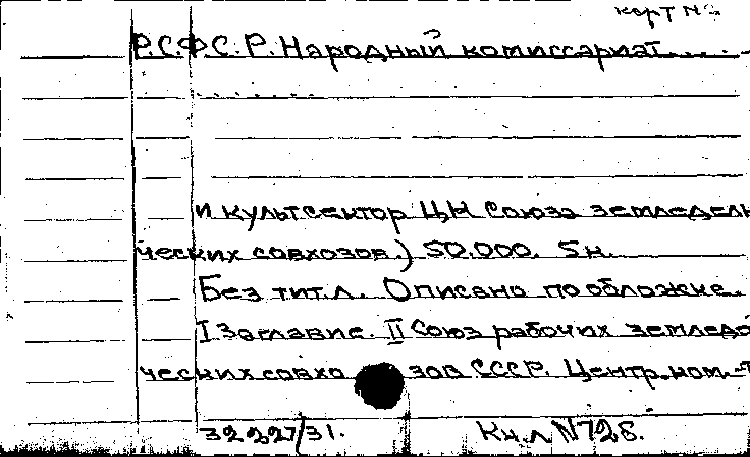 карт №
Р.С.Ф.С.Р. Народный комиссариат . . . .
. . . . . . . .
и культсектор ЦК Союза земледель
ческих совхозов.) 50.000. 5к.
Без тит.л. Описано по обложке.
I Заглавие. II Союз рабочих земледе
ческих совхо зов СССР. Центр. ком-т
32227/31. Кн.л №726.